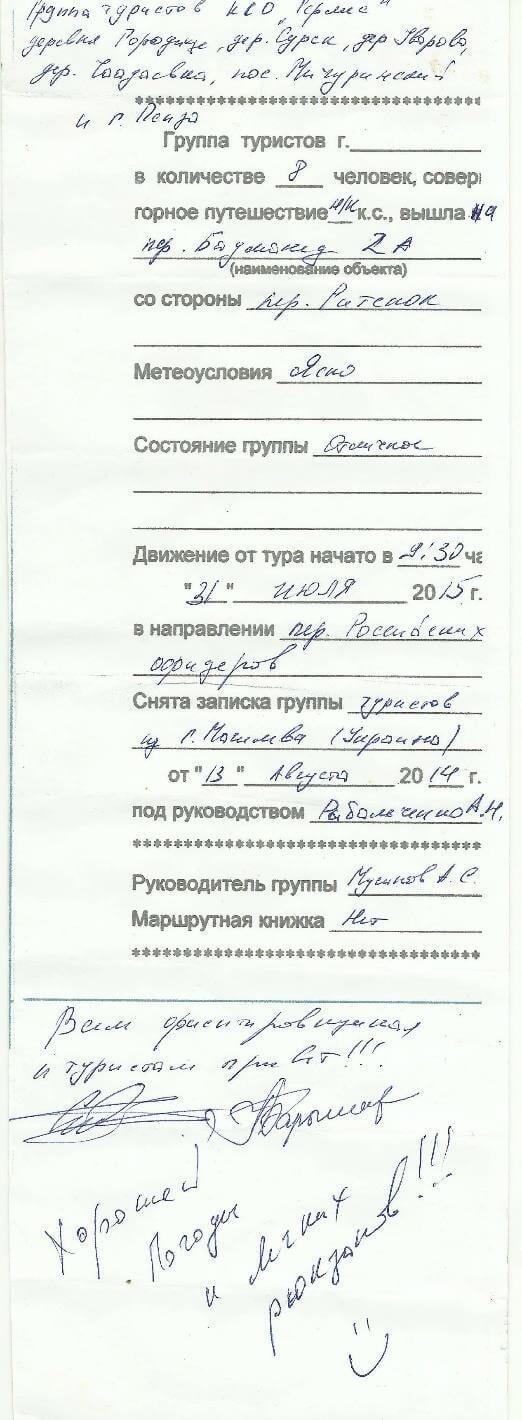 Группа туристов КСО "Гермес"
деревня Городище, дер. Сурск, дер Уварово,
дер. Чаадаевка, пос. Мичуринский
и г. Пенза
********************************
Группа туристов г.
в количестве 8 человек, совер
горное путешествие н/к к.с., вышла на
пер. Баумана 2А
(наименование объекта)
со стороны пер.
Метеоусловия Ясно
Состояние группы Отличное
Движение от тура начато в 9:30 ча
"31" ИЮЛЯ 2015 г.
в направлении пер. Российских
офицеров
Снята записка группы туристов
из г. (Украина)
от "13" Августа 2014 г.
под руководством А.Н.
********************************
Руководитель группы А.С.
Маршрутная книжка Нет
********************************
Всем ориентировщикам
и туристам привет!!!
Хорошей
Погоды
и легких
рюкзаков!!!